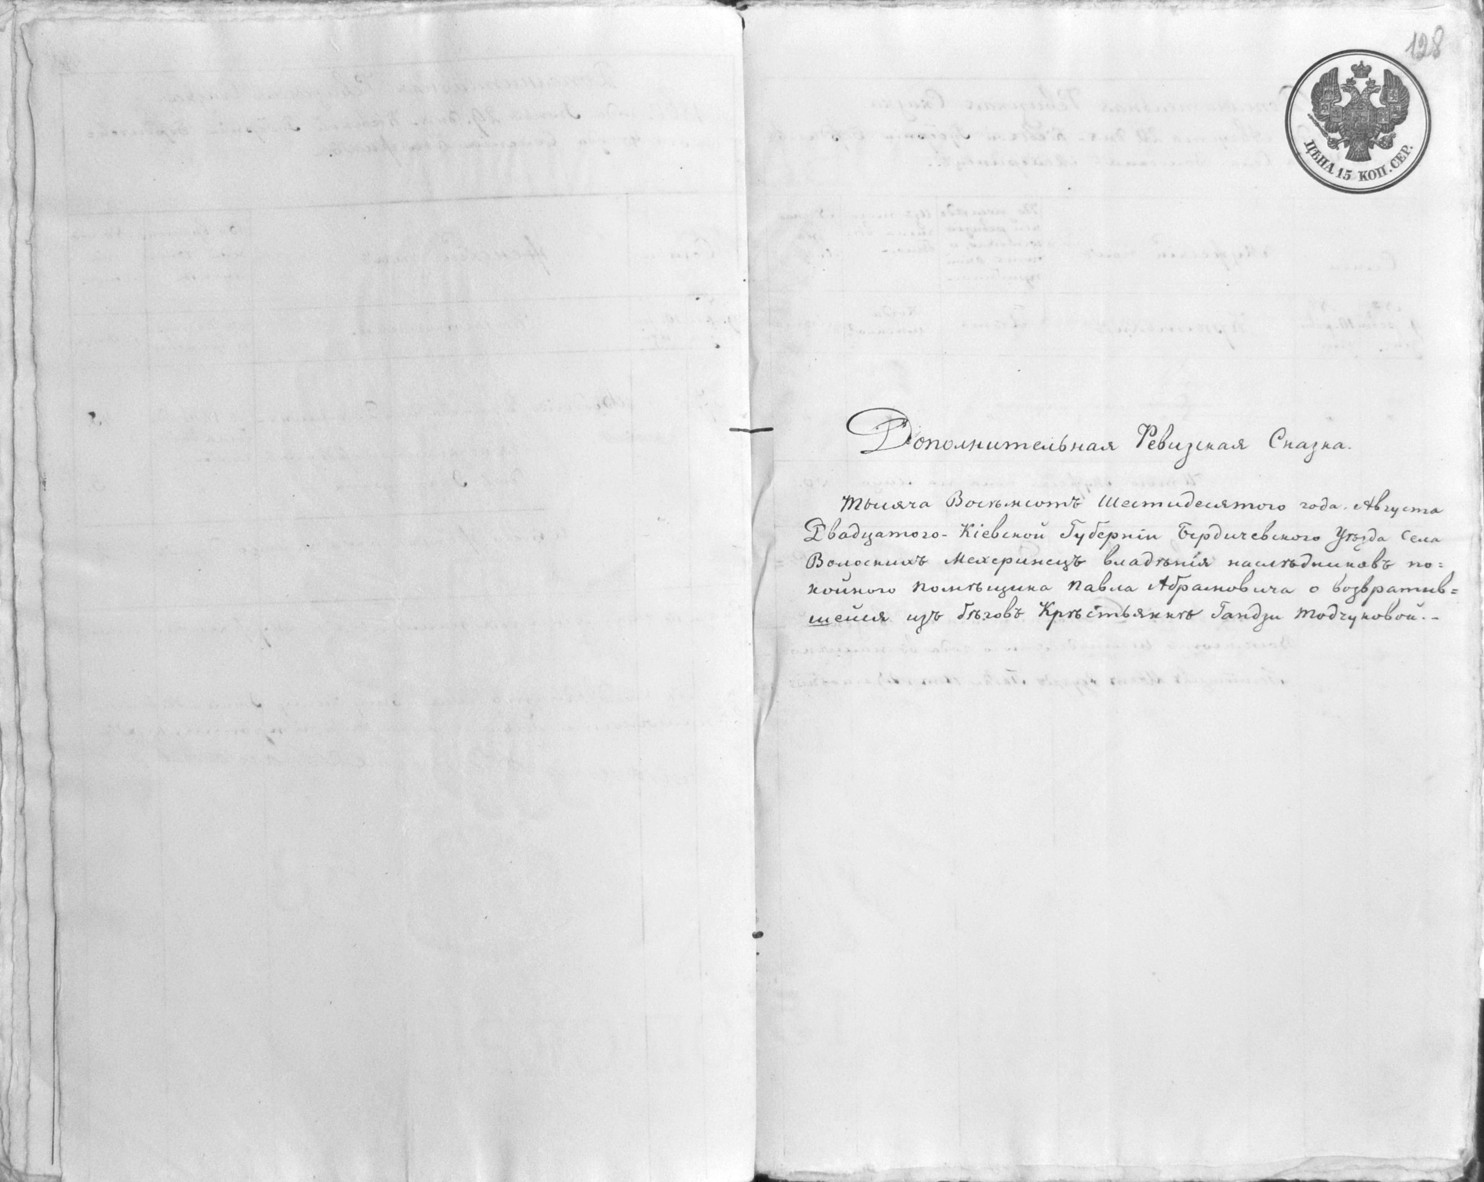 128
ЦѢНА 15 КОП. СЕР.
Дополнительная Ревизкая Сказка.
Тысяча Восѣмсотъ Шестидесятого года. Августа
Двадцатого - Кіевской Губерніи Бердичевского Уѣзда Села
Волоскихъ Мехеринецъ владѣнія наслѣдниковъ по=
койного помѣщика Павла Абрамовича о возвратив=
шейся изъ бѣговъ Крѣстьянкѣ Гандзи Тодчуковой. -